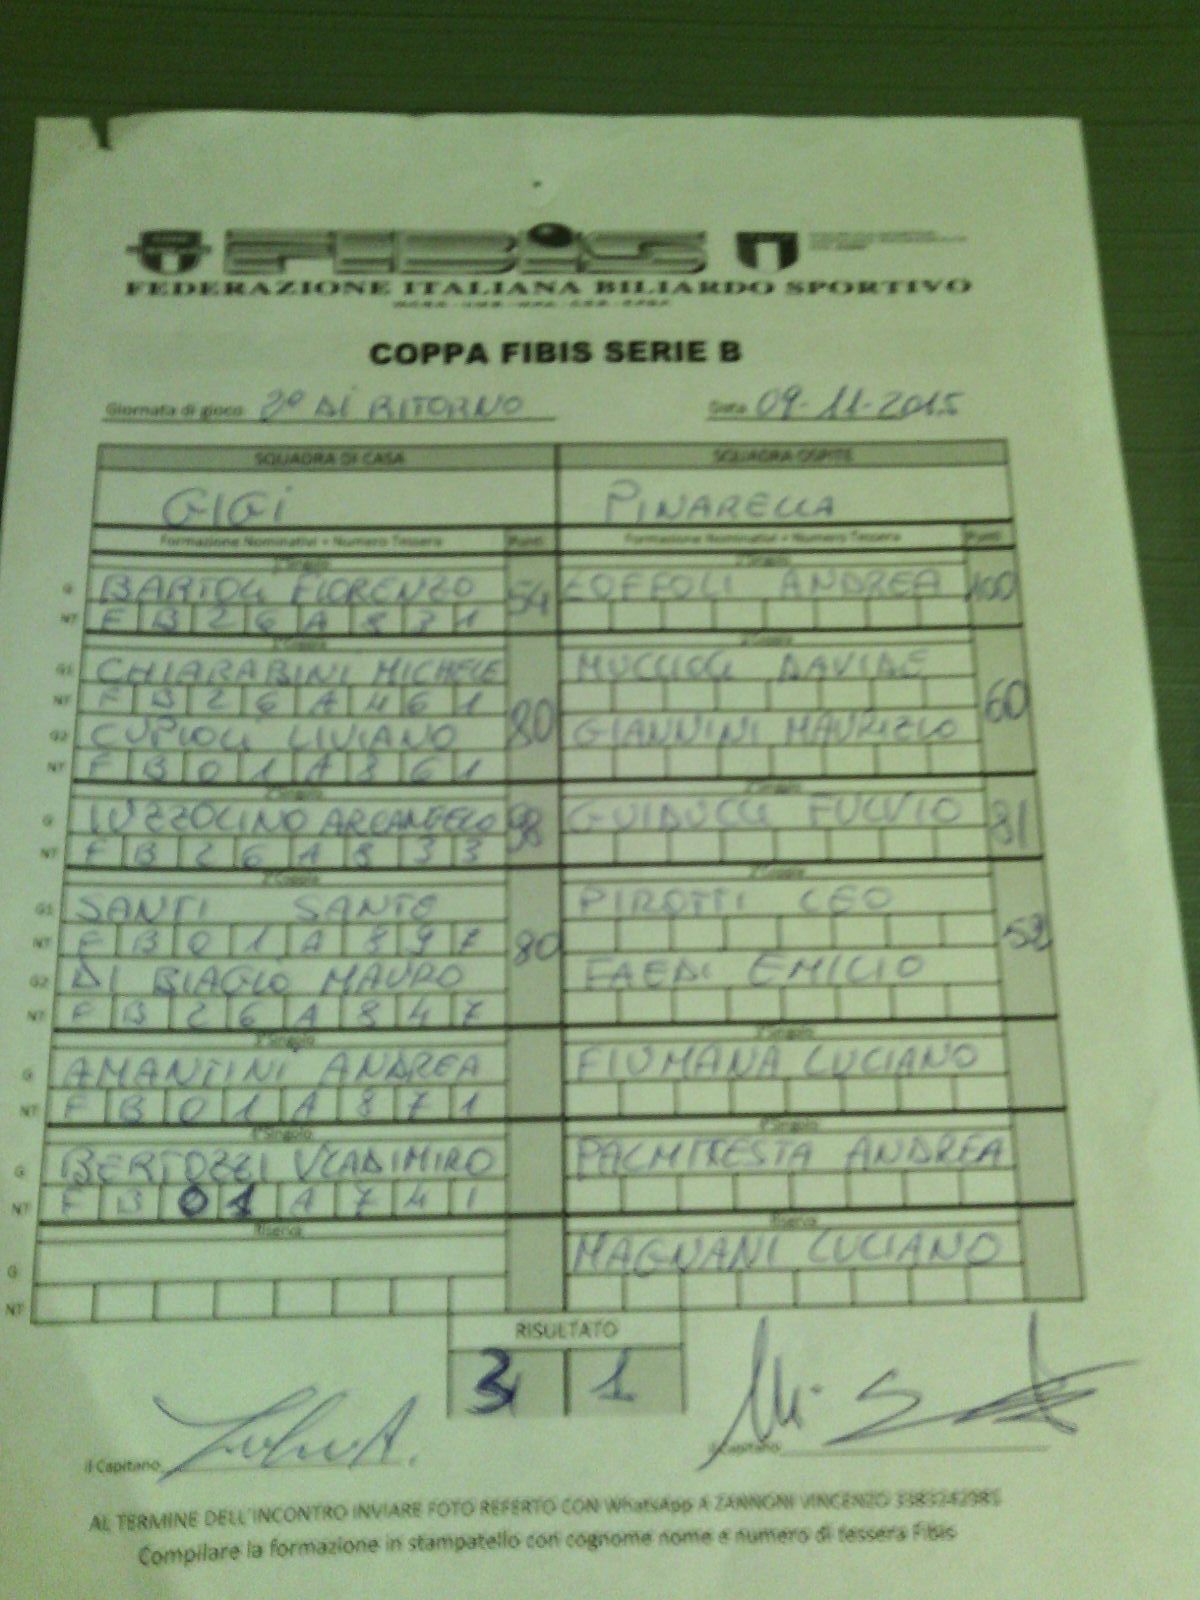 FIBiS
FEDERAZIONE ITALIANA BILIARDO SPORTIVO
COPPA FIBIS SERIE B
Giornata di gioco 2° DI RITORNO Data 09-11-2015
SQUADRA DI CASA SQUADRA OSPITE
GIGI PINARELLA
Formazione Nominativi + Numero Tessera Punti Formazione Nominativi + Numero Tessera Punti
1°Singolo 1°Singolo
G BARTOLI FIORENZO 54 ZOFFOLI ANDREA 100
NT F B 2 6 A 8 3 1
1°Coppia 1°Coppia
G1 CHIARABINI MICHELE 80 MUCCIOLI DAVIDE 60
NT F B 2 6 A 4 6 1
G2 CUPIOLI LIVIANO GIANNINI MAURIZIO
NT F B 0 1 A 8 6 1
2°Singolo 2°Singolo
G IUZZOLINO ARCANGELO 98 GUIDUCCI FULVIO 81
NT F B 2 6 A 8 3 3
2°Coppia 2°Coppia
G1 SANTI SANTE 80 PIROTTI LEO 52
NT F B 0 1 A 8 9 7
G2 DI BIAGIO MAURO FAEDI EMILIO
NT F B 2 6 A 8 4 7
3°Singolo 3°Singolo
G AMANTINI ANDREA FIUMANA LUCIANO
NT F B 0 1 A 8 7 1
4°Singolo 4°Singolo
G BERTOZZI VLADIMIRO PALMITESTA ANDREA
NT F B 0 1 A 7 4 1
Riserva Riserva
G MAGNANI LUCIANO
NT
RISULTATO
3 1
il Capitano il Capitano
AL TERMINE DELL'INCONTRO INVIARE FOTO REFERTO CON WhatsApp A ZANNONI VINCENZO 3383242981
Compilare la formazione in stampatello con cognome nome e numero di tessera Fibis